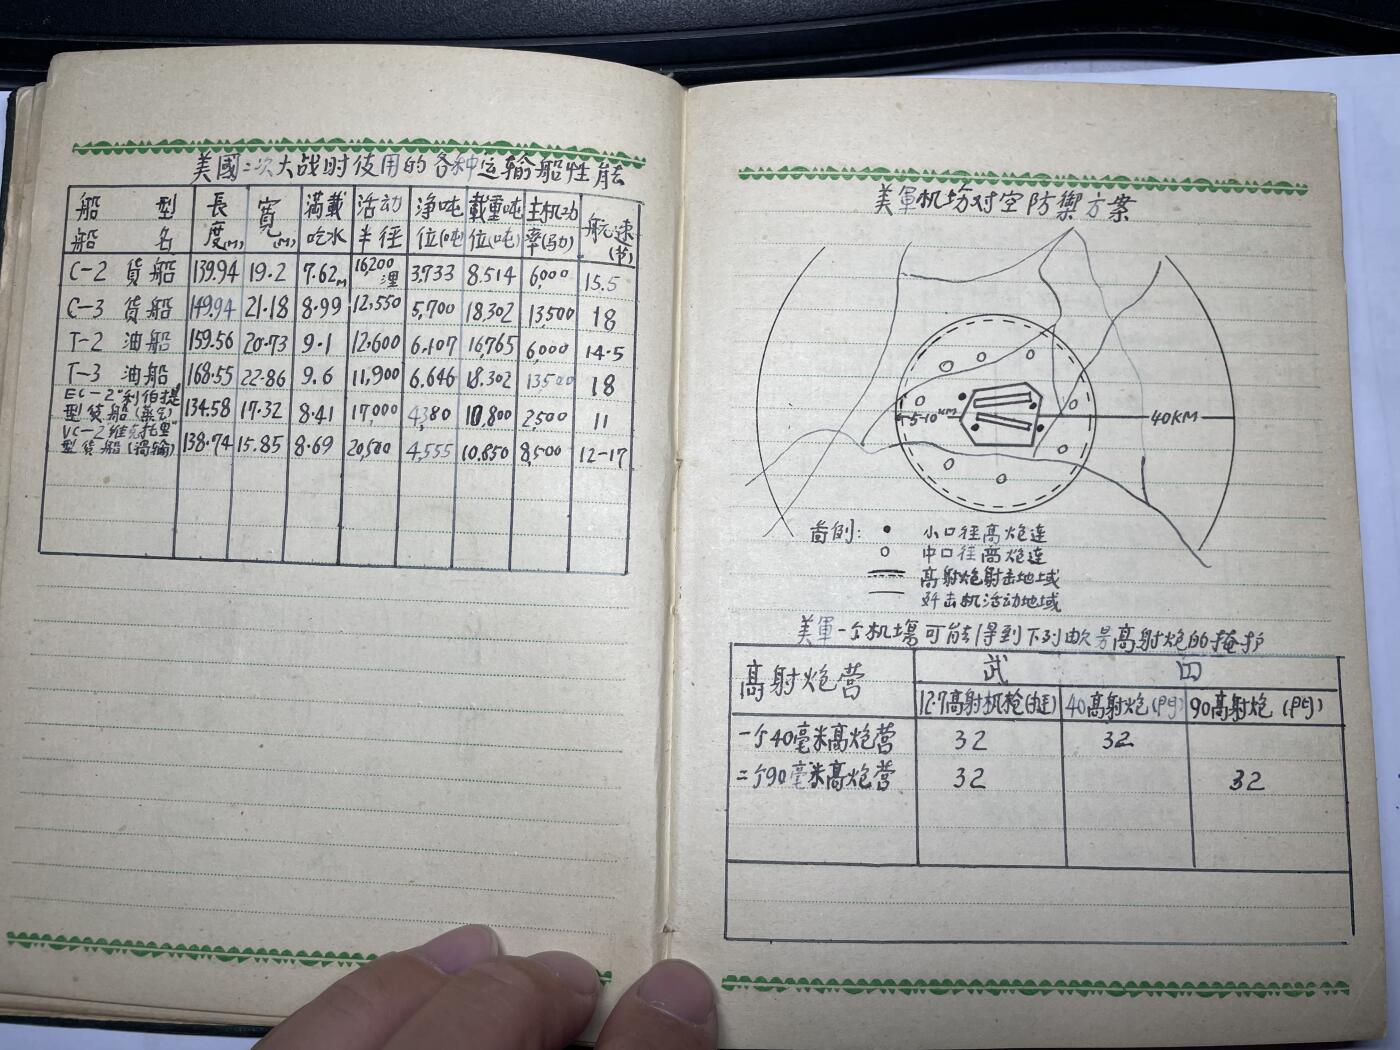 美國二次大战时使用的各种运输船性能
船型 船名 長度(M) 寬(M) 滿載吃水 活动半径 净吨位(吨) 載重吨位(吨) 主机功率(马力) 航速(节)
C-2 貨船 139.94 19.2 7.62M 16,200浬 3,733 8.514 6,000 15.5
C-3 貨船 149.94 21.18 8.99 12,550 5,700 18,302 13,500 18
T-2 油船 159.56 20.73 9.1 12.600 6,107 16,765 6,000 14.5
T-3 油船 168.55 22.86 9.6 11,900 6.646 18.302 13,500 18
EC-2"利伯提"型貨船(蒸气) 134.58 17.32 8.41 17,000 4,380 10,800 2,500 11
VC-2"维克托里"型貨船(渦輪) 138.74 15.85 8.69 20,500 4,555 10.850 8,500 12-17
美軍机场对空防禦方案
5-10KM
40KM
啚例:
● 小口径高炮连
○ 中口径高炮连
高射炮射击地域
歼击机活动地域
美軍一个机場可能得到下列高射炮的掩护
高射炮营 武 四
12.7高射机枪(挺) 40高射炮(門) 90高射炮(門)
一个40毫米高炮营 32 32
二个90毫米高炮营 32 32